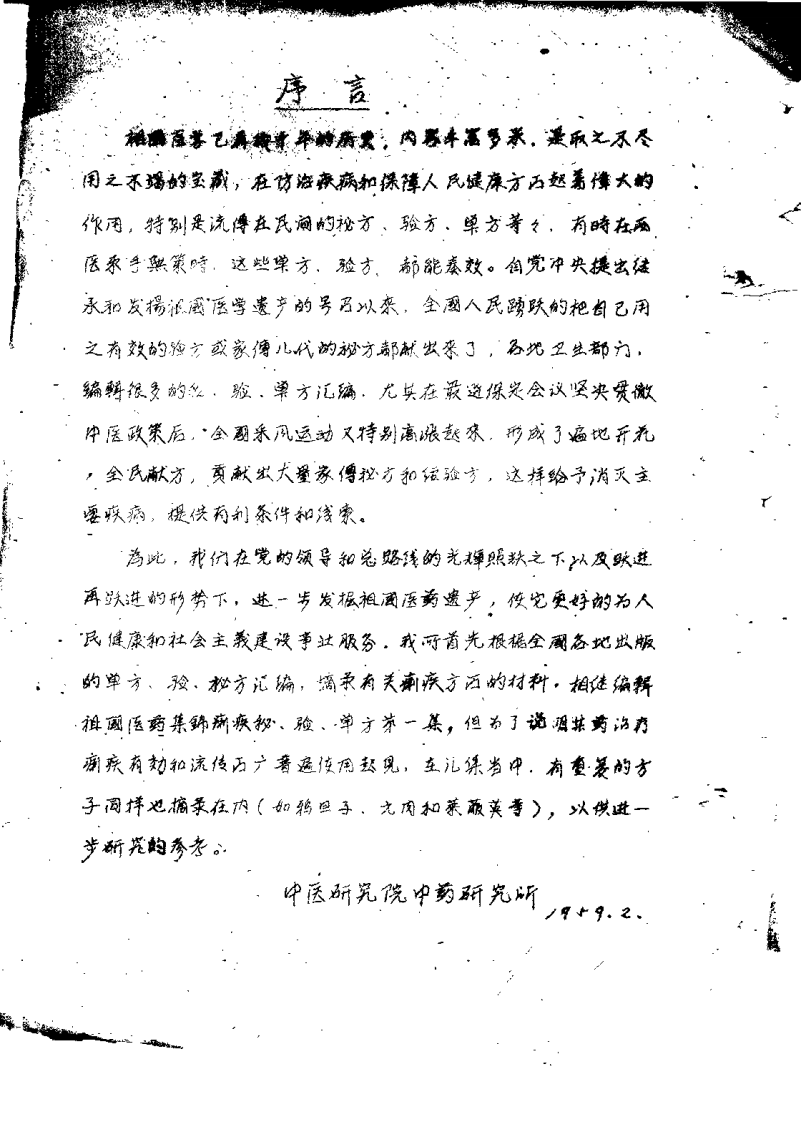 序言
祖國医药已有数千年的历史，内容丰富多采，是取之不尽
用之不竭的宝藏，在防治疾病和保障人民健康方面起着偉大的
作用，特别是流傳在民间的秘方、验方、单方等々，有時在西
医束手無策時，这些单方、验方、都能奏效。自党中央提出继
承和发揚祖國医学遗产的号召以来，全國人民踴跃的把自己用
之有效的验方或家傳几代的秘方都献出来了，各地卫生部门，
编輯很多的秘、验、单方汇编，尤其在最近保定会议坚决贯徹
中医政策后，全國采风运动又特别高漲起來，形成了遍地开花
，全民献方，貢献出大量家傳秘方和经验方，这样给予消灭主
要疾病，提供有利条件和线索。
为此，我们在党的领导和总路线的光輝照耀之下以及跃进
再跃进的形势下，进一步发掘祖國医药遗产，使它更好的为人
民健康和社会主義建设事业服务。我所首先根据全國各地出版
的单方、验、秘方汇编，摘录有关痢疾方面的材料，相继编輯
祖國医药集錦痢疾秘、验、单方第一集，但为了说明某药治疗
痢疾有効和流传面广普遍使用起见，在汇集当中，有重复的方
子同样也摘录在内（如鸦旦子、尤肉和莱菔英等），以供进一
步研究的参考。
中医研究院中药研究所
1959.2.